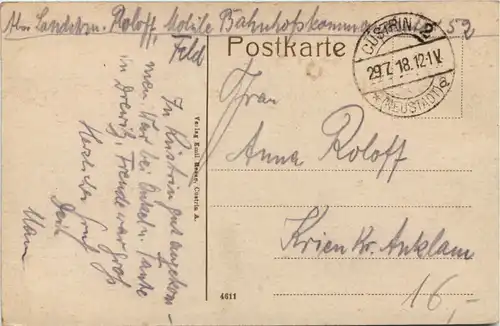 Abs. Landstm. Roloff, Mobile Bahnhofskomma 52
Feld
Postkarte
CÜSTRIN 2
29.7.18.12-1V.
* (NEUSTADT) a
In Küstrin gut angekom-
men. War bei Onkel u. Tante
in Drewitz, Freude war groß
Herzlichen Gruß
Dein
Verlag Emil Cüstrin A.
Frau
Anna Roloff
Krien Kr. Anklam
4611
16,-